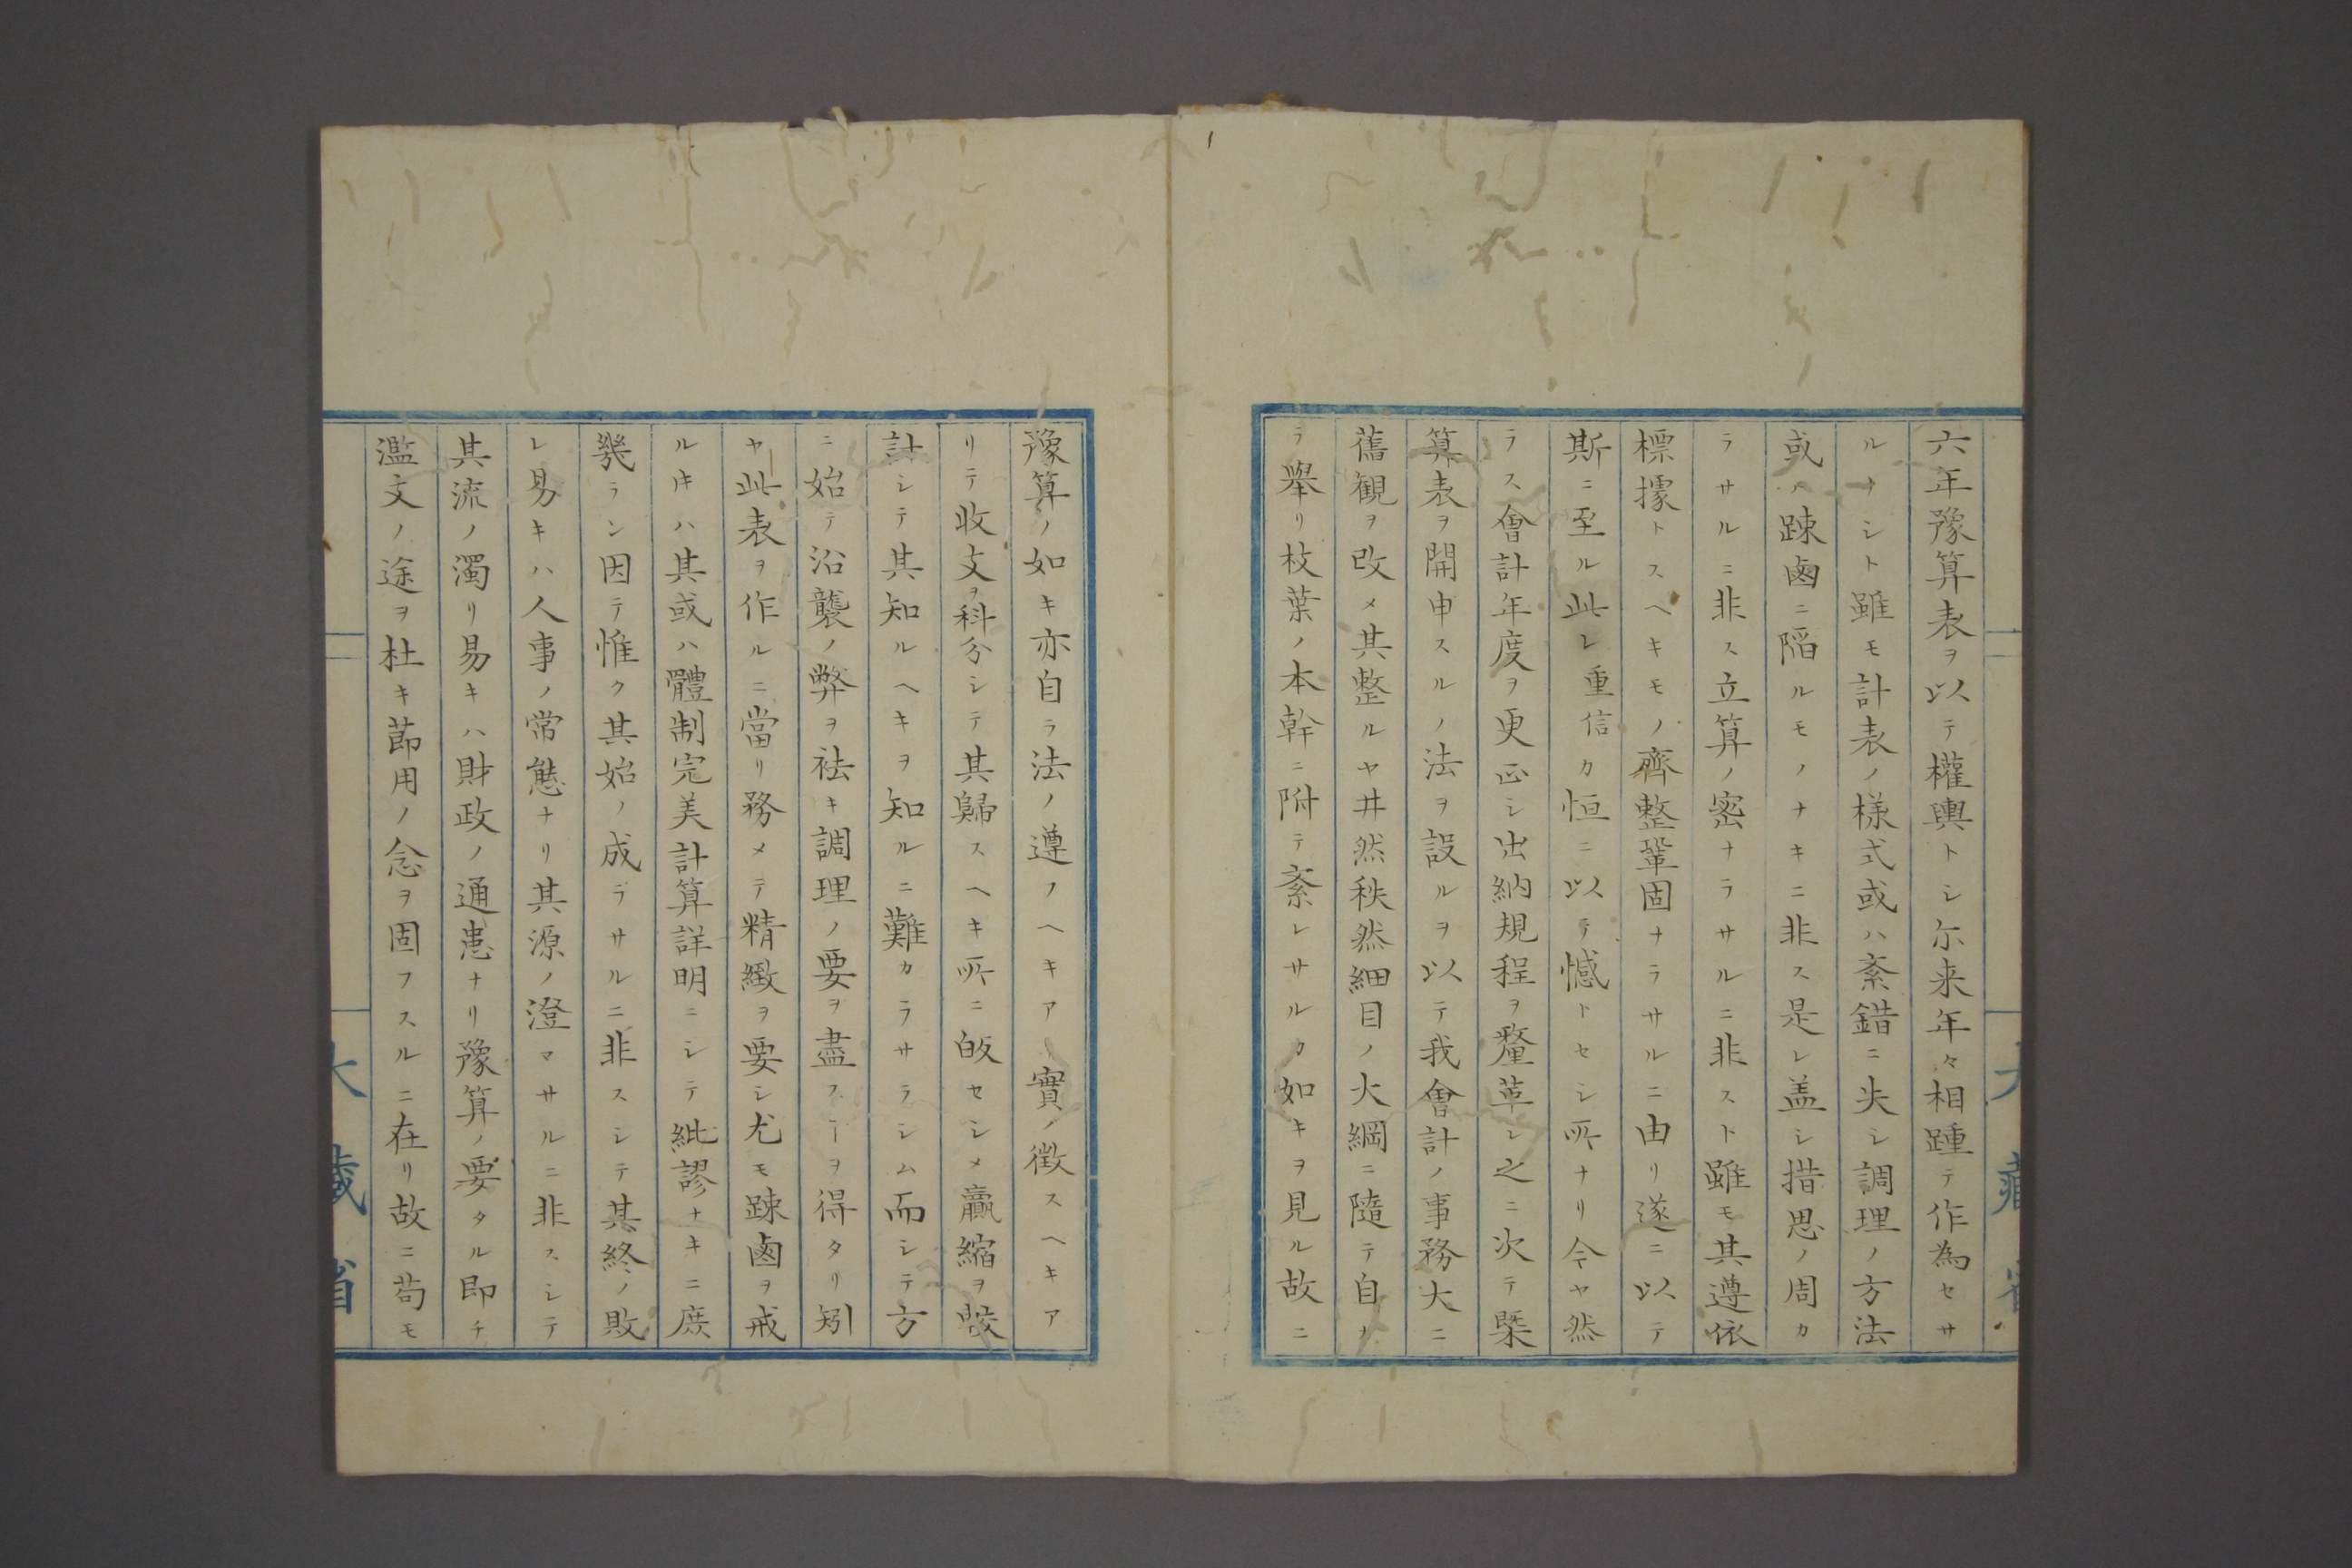 六年豫算表ヲ以テ權輿トシ尓来年々相踵テ作為セサ
ルナシト雖モ計表ノ様式或ハ紊錯ニ失シ調理ノ方法
或ハ踈鹵ニ陷ルモノナキニ非ス是レ盖シ措思ノ周カ
ラサルニ非ス立算ノ密ナラサルニ非スト雖モ其遵依
標據トスヘキモノ齊整鞏固ナラサルニ由リ遂ニ以テ
斯ニ至ル此レ重信カ恒ニ以テ憾トセシ所ナリ今ヤ然
ラス會計年度ヲ更正シ出納規程ヲ釐革シ之ニ次テ槩
算表ヲ開申スルノ法ヲ設ルヲ以テ我會計ノ事務大ニ
舊観ヲ改メ其整ルヤ井然秩然細目ノ大綱ニ隨テ自カ
ラ舉リ枝葉ノ本幹ニ附テ紊レサルカ如キヲ見ル故ニ
豫算ノ如キ亦自ラ法ノ遵フヘキアリ實ノ徴スヘキア
リテ收支ヲ科分シテ其歸スヘキ所ニ皈セシメ贏縮ヲ
計シテ其知ルヘキヲ知ルニ難カラサラシム而シテ方
ニ始テ沿襲ノ弊ヲ袪キ調理ノ要ヲ盡スヿヲ得タリ矧
ヤ此表ヲ作ルニ當リ務メテ精緻ヲ要シ尤モ踈鹵ヲ戒
ルキハ其或ハ體制完美計算詳明ニシテ紕謬ナキニ庶
幾ラン因テ惟ク其始ノ成ラサルニ非スシテ其終ノ敗
レ易キハ人事ノ常態ナリ其源ノ澄マサルニ非スシテ
其流ノ濁リ易キハ財政ノ通患ナリ豫算ノ要タル即チ
濫支ノ途ヲ杜キ節用ノ念ヲ固フスルニ在リ故ニ苟モ
大藏省
大藏省